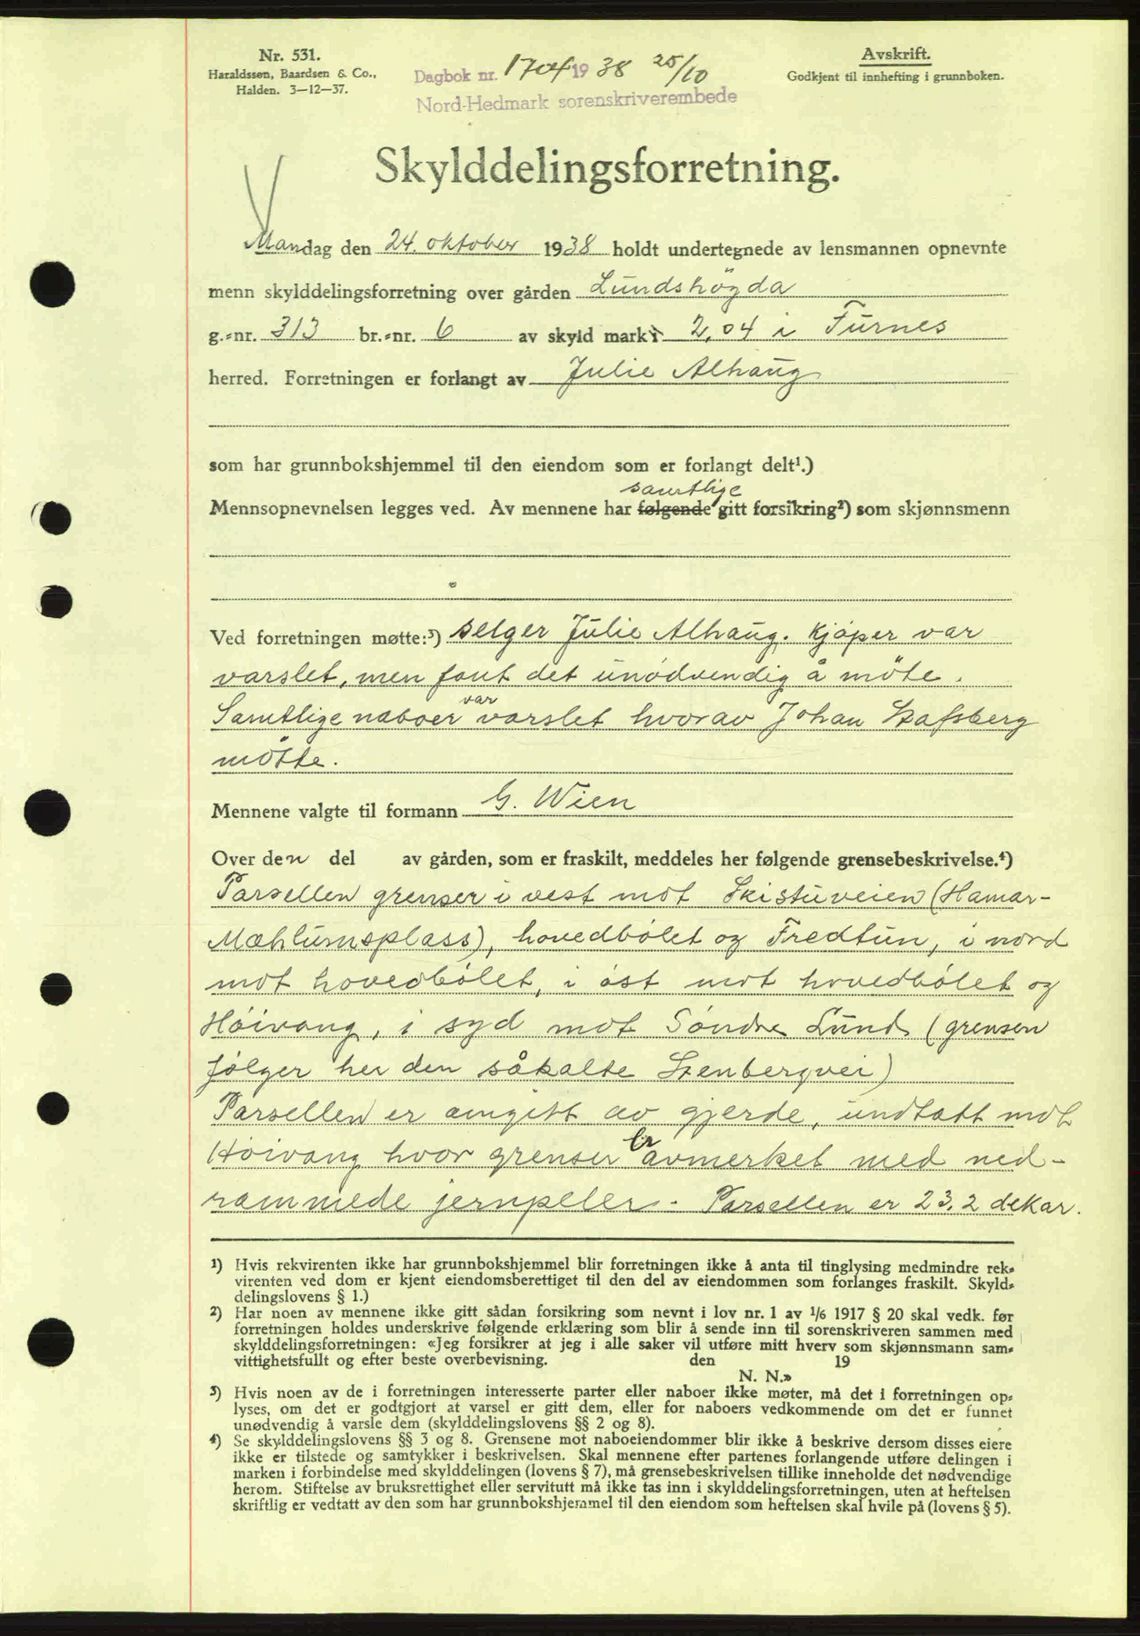 Nr. 531.
Haraldssen, Baardsen & Co.,
Halden. 3—12—37.
Dagbok nr. 1704 1938 25/10
Nord-Hedmark sorenskriverembede
Avskrift.
Godkjent til innhefting i grunnboken.
Skylddelingsforretning.
Mandag den 24. oktober 1938 holdt undertegnede av lensmannen opnevnte
menn skylddelingsforretning over gården Lundshögda
g.-nr. 313 br.-nr. 6 av skyld mark 2,04 i Furnes
herred. Forretningen er forlangt av Julie Alhaug
som har grunnbokshjemmel til den eiendom som er forlangt delt¹.)
samtlige
Mennsopnevnelsen legges ved. Av mennene har følgende gitt forsikring²) som skjønnsmenn
Ved forretningen møtte:³) selger Julie Alhaug. Kjöper var
varslet, men fant det unödvendig å möte.
Samtlige naboer var varslet hvorav Johan Stafsberg
mötte.
Mennene valgte til formann G. Wien
Over den del av gården, som er fraskilt, meddeles her følgende grensebeskrivelse.⁴)
Parsellen grenser i vest mot Skistuveien (Hamar-
Mæhlumsplass), hovedbölet og Fredtun, i nord
mot hovedbölet, i öst mot hovedbölet og
Höivang, i syd mot Söndre Lund (grensen
fölger her den såkalte Stenbergvei)
Parsellen er omgitt av gjerde, undtatt mot
Höivang hvor grenser er avmerket med ned-
rammede jernpeler. Parsellen er 23,2 dekar.
¹) Hvis rekvirenten ikke har grunnbokshjemmel blir forretningen ikke å anta til tinglysing medmindre rek-
virenten ved dom er kjent eiendomsberettiget til den del av eiendommen som forlanges fraskilt. Skyld-
delingslovens § 1.)
²) Har noen av mennene ikke gitt sådan forsikring som nevnt i lov nr. 1 av 1/6 1917 § 20 skal vedk. før
forretningen holdes underskrive følgende erklæring som blir å sende inn til sorenskriveren sammen med
skylddelingsforretningen: «Jeg forsikrer at jeg i alle saker vil utføre mitt hverv som skjønnsmann sam-
vittighetsfullt og efter beste overbevisning. den 19
N. N.»
³) Hvis noen av de i forretningen interesserte parter eller naboer ikke møter, må det i forretningen op-
lyses, om det er godtgjort at varsel er gitt dem, eller for naboers vedkommende om det er funnet
unødvendig å varsle dem (skylddelingslovens §§ 2 og 8).
⁴) Se skylddelingslovens §§ 3 og 8. Grensene mot naboeiendommer blir ikke å beskrive dersom disses eiere
ikke er tilstede og samtykker i beskrivelsen. Skal mennene efter partenes forlangende utføre delingen i
marken i forbindelse med skylddelingen (lovens § 7), må grensebeskrivelsen tillike inneholde det nødvendige
herom. Stiftelse av bruksrettighet eller servitutt må ikke tas inn i skylddelingsforretningen, uten at heftelsen
skriftlig er vedtatt av den som har grunnbokshjemmel til den eiendom som heftelsen skal hvile på (lovens § 5).